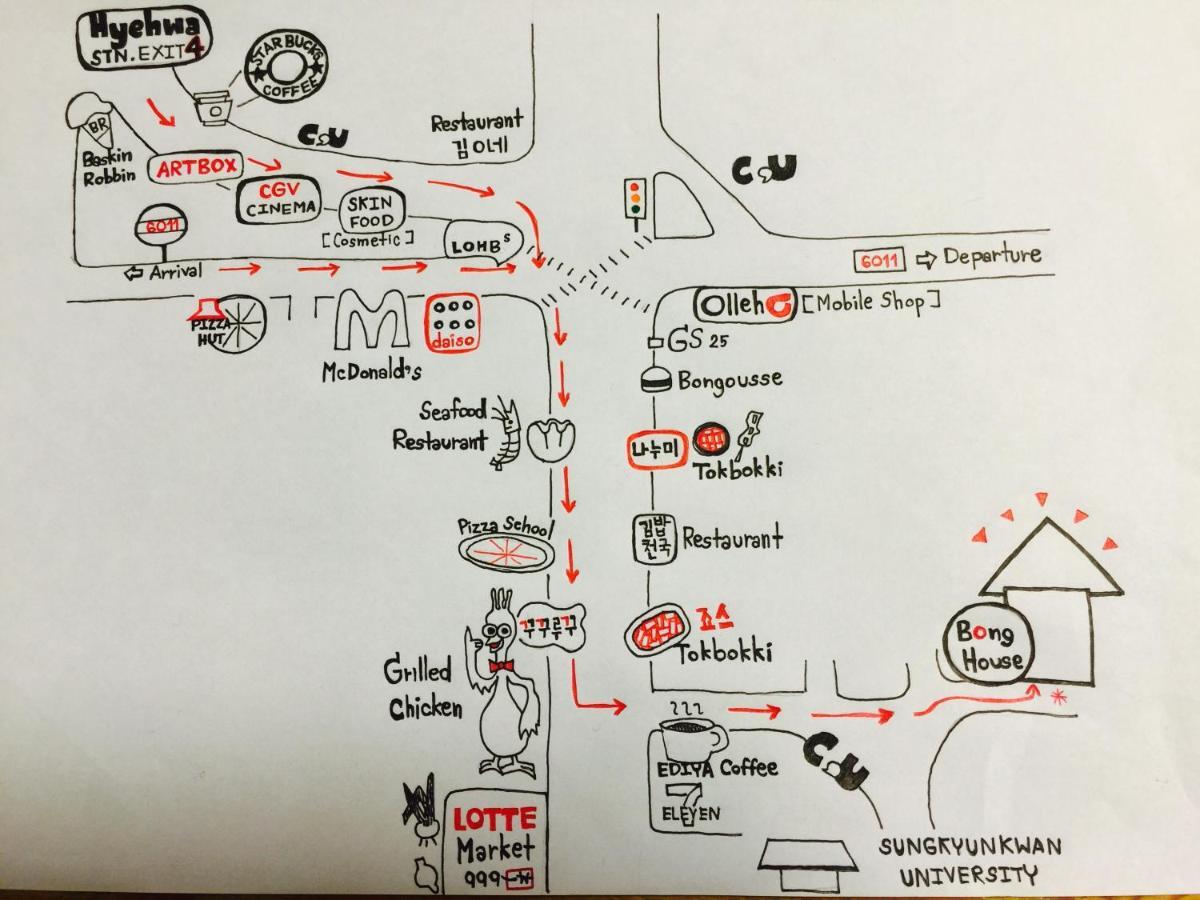 Hyehwa
STN. EXIT 4
STARBUCKS
COFFEE
BR
Baskin
Robbin
ARTBOX
CGV
CINEMA
SKIN
FOOD
[Cosmetic]
LOHBs
CU
Restaurant
김이네
CU
6011
⇦ Arrival
6011 ⇨ Departure
PIZZA
HUT
McDonald's
daiso
Olleh [Mobile Shop]
GS 25
Bongousse
Seafood
Restaurant
나누미
Tokbokki
Pizza School
김밥
천국
Restaurant
꾸꾸루꾸
Grilled
Chicken
죠스
Tokbokki
Bong
House
EDIYA Coffee
7
ELEVEN
CU
LOTTE
Market
999
SUNGKYUNKWAN
UNIVERSITY